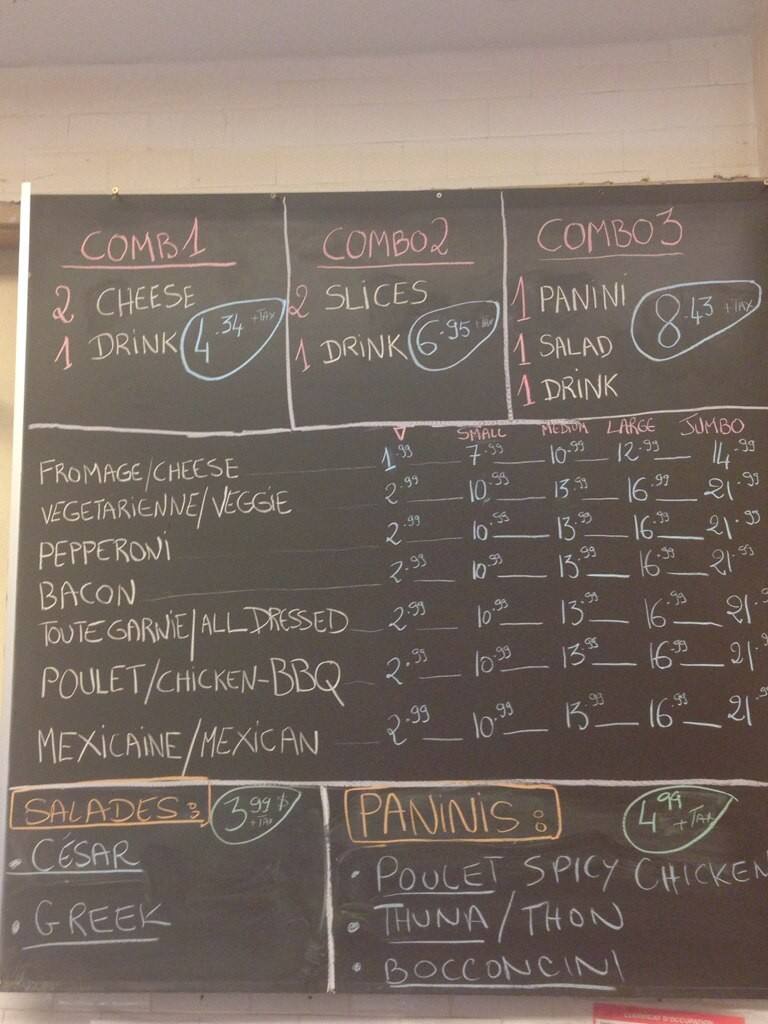 COMB1
2 CHEESE
1 DRINK 4.34 +TAX
COMBO2
2 SLICES
1 DRINK 6.95 +TAX
COMBO3
1 PANINI 8.43 +TAX
1 SALAD
1 DRINK
SMALL MEDIUM LARGE JUMBO
FROMAGE/CHEESE 1.99 7.99 10.99 12.99 14.99
VEGETARIENNE/VEGGIE 2.99 10.99 13.99 16.99 21.99
PEPPERONI 2.99 10.99 13.99 16.99 21.99
BACON 2.99 10.99 13.99 16.99 21.99
TOUTE GARNIE/ALL DRESSED 2.99 10.99 13.99 16.99 21.
POULET/CHICKEN-BBQ 2.99 10.99 13.99 16.99 21.
MEXICAINE/MEXICAN 2.99 10.99 13.99 16.99 21.
SALADES: 3.99$ +TAX
• CÉSAR
• GREEK
PANINIS: 4.99 +TAX
• POULET SPICY CHICKEN
• THUNA/THON
• BOCCONCINI
CERTIFICAT D'OCCUPATION